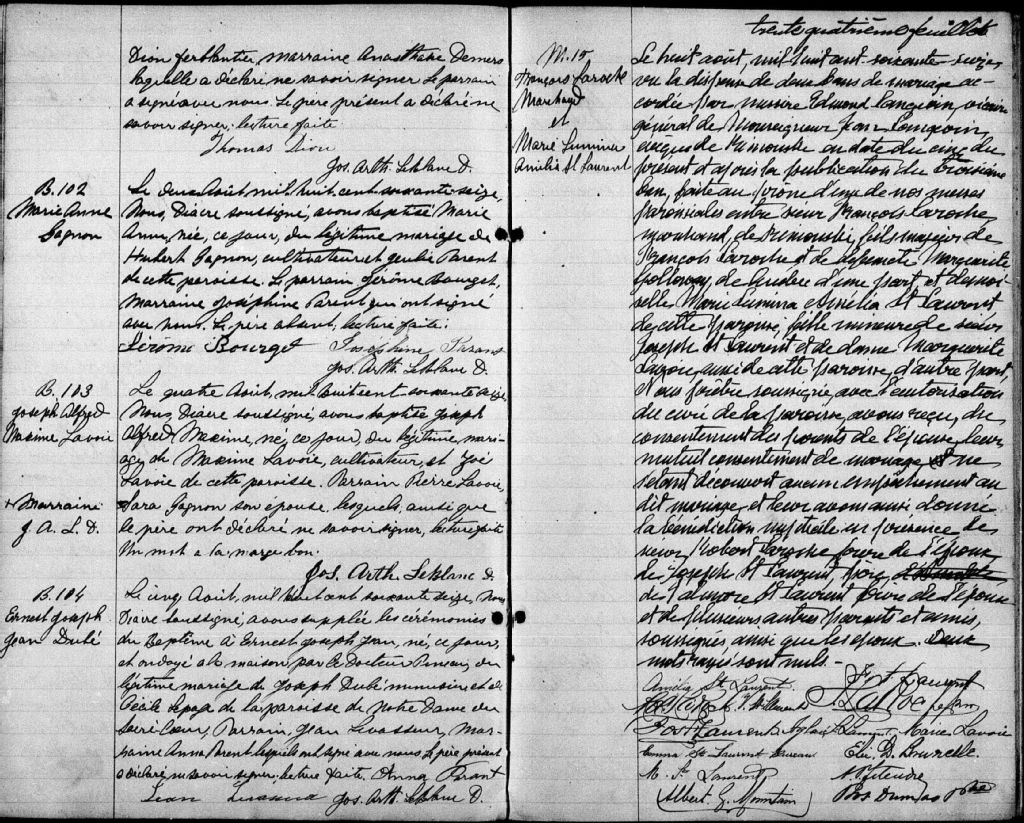 Dion ferblantier, marraine Anasthase Demers
laquelle a déclaré ne savoir signer. Le parrain
a signé avec nous. Le père présent a déclaré ne
savoir signer. lecture faite.
Thomas Dion
Jos. Arth. Leblanc D.
B. 102
Marie Anne
Gagnon
Le deux Août mil huit cent soixante seize,
Nous, Diacre soussigné, avons baptisé Marie
Anne, née, ce jour, du légitime mariage de
Hubert Gagnon, cultivateur et Parent
de cette paroisse. Le parrain Jérôme Bourget,
Marraine Joséphine Parent qui ont signé
avec nous. Le père absent, lecture faite.
Jérôme Bourget Joséphine Parant
Jos. Arth. Leblanc D.
B. 103
Joseph Alfred
Maxime Lavoie
Le quatre Août, mil huit cent soixante seize,
Nous, Diacre soussigné, avons baptisé Joseph
Alfred Maxime, né, ce jour, du légitime mari-
age, de Maxime Lavoie, cultivateur, et Zoé
Lavoie de cette paroisse. Parrain Pierre Lavoie,
+ Marraine
J. A. L. D.
Sara Gagnon son épouse, lesquels, ainsi que
le père ont déclaré ne savoir signer, lecture faite
Un mot à la marge bon.
Jos. Arth. Leblanc D.
B. 104
Ernest Joseph
Jean Dubé
Le cinq Août, mil huit cent soixante seize, Nous
Diacre soussigné, avons supplée les cérémonies
du Baptême à Ernest Joseph Jean, né, ce jour,
et ondoyé à la maison par le Docteur du
légitime mariage de Joseph Dubé menuisier et de
Cécile Lepage de la paroisse de Notre Dame du
Sacré-Cœur, Parrain, Jean Levasseur, Mar-
raine Anna Parent lesquels ont signé avec nous. Le père présent
a déclaré ne savoir signer. lecture faite. Anna Parant
Jean Levasseur Jos. Arth. Leblanc D.
trente quatrième feuillet
M. 15
François Laroche
Marchand
et
Marie Luminа
Amélia St Laurent
Le huit août, mil huit cent soixante-seize
vu la dispense de deux bans de mariage ac-
cordée par messire Edmond Langevin, vicaire
général de Monseigneur Jean Langevin,
évêque de Rimouski en date du cinq du
présent et après la publication du troisième
ban, faite au prône d'une de nos messes
paroissiales entre sieur François Laroche
marchand, de Rimouski, fils majeur de
François Laroche et de défuncte Marguerite
Holloway, de Québec d'une part, et demoi-
selle Marie Amélia St Laurent
de cette paroisse, fille mineure de sieur
Joseph St Laurent et de dame Marguerite
aussi de cette paroisse, d'autre part,
Nous prêtre soussigné, avec l'autorisation
du curé de la paroisse, avons reçu, du
consentement des parents de l'épouse, leur
mutuel consentement de mariage et ne
s'étant découvert aucun empêchement au
dit mariage, et leur avons aussi donné
la bénédiction nuptiale en présence de
sieur Robert Laroche frère de l'époux
de Joseph St Laurent, père
de St Laurent frère de l'épouse
et de plusieurs autres parents et amis,
soussignés, ainsi que les époux. Deux
mots rayés sont nuls. -
Amélia St Laurent
Jos St Laurent
Marie Lavoie
Emma St Laurent
M. St Laurent
Albert G. Mountain